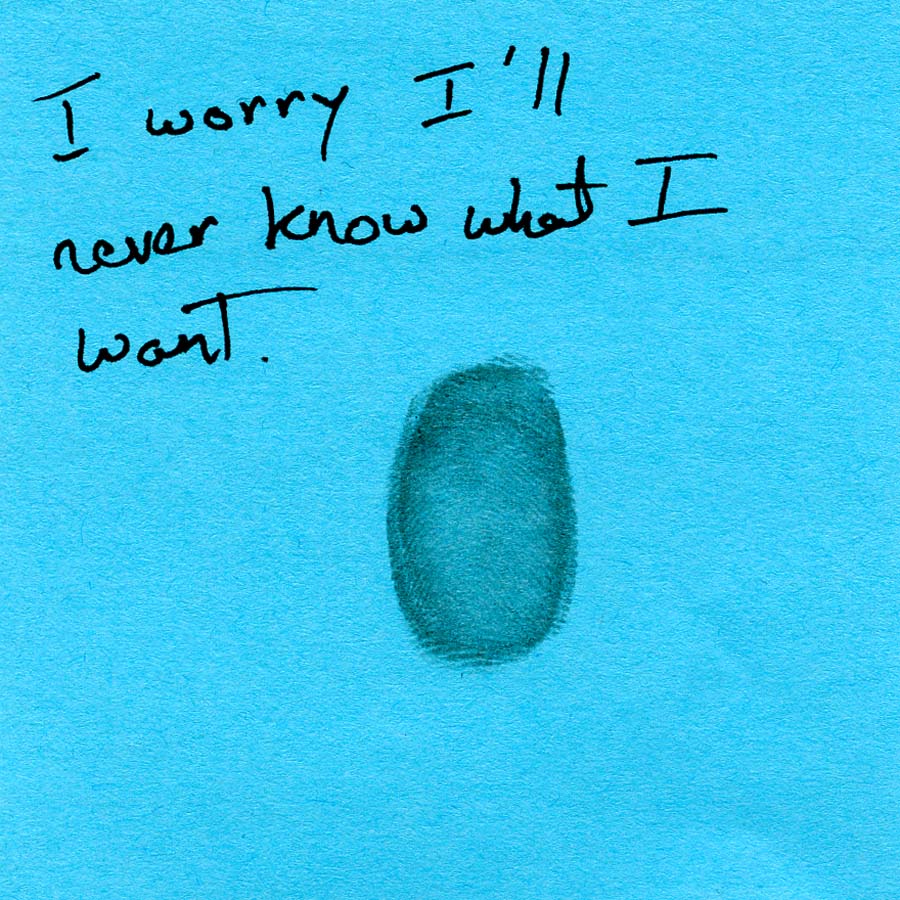 I worry I'll
never know what I
want.